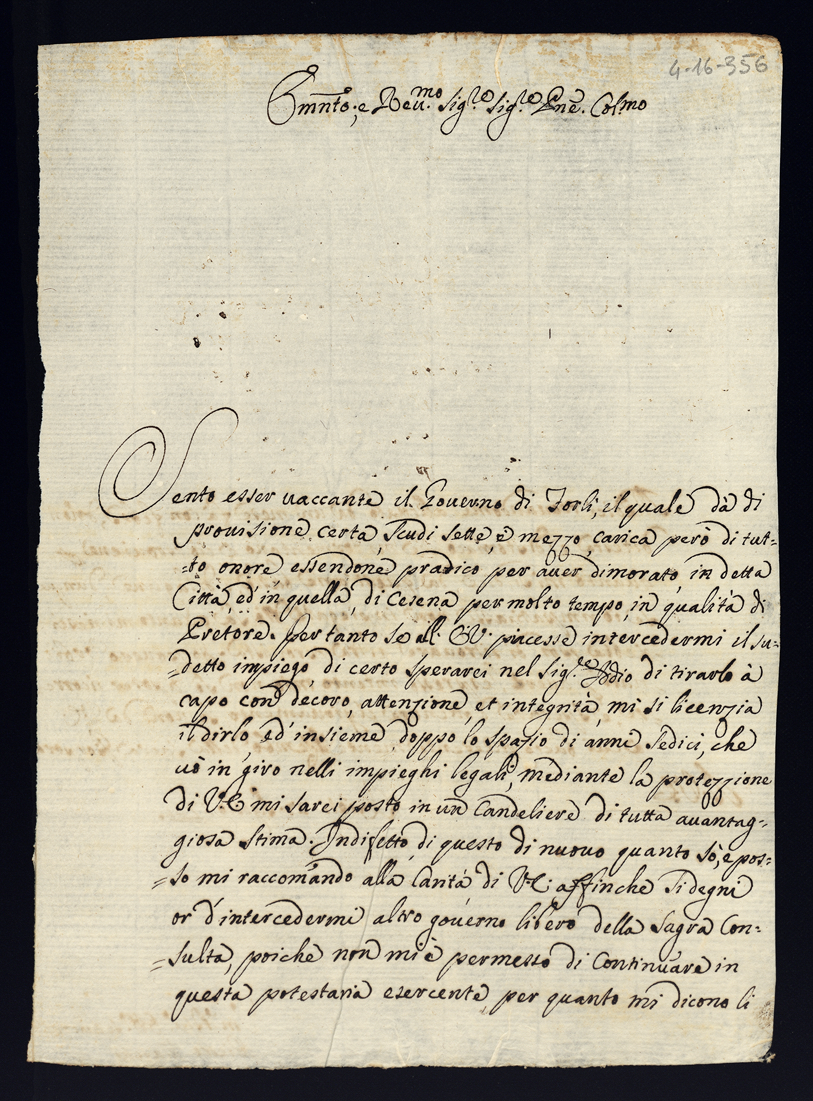 4-16-356
Emnto; e Reu.mo Sig.re Sig.re Pne. Col.mo
Sento esser uaccante il Gouerno di Forlì, il quale dà di
prouisione certa Scudi sette e mezzo, carica però di tut=
=to onore essendone pradico per auer dimorato in detta
Città, ed in quella di Cesena per molto tempo in qualità di
Pretore. Per tanto se all' E.V. piacesse intercedermi il su=
=detto impiego di certo sperarei nel Sig.re Iddio di tirarlo à
capo con decoro, attenzione et integrità mi si licenzia
il dirlo ed insieme doppo lo spazio di anni Sedici, che
uò in giro nelli impieghi legali, mediante la protezzione
di V.E. mi sarei posto in un Candeliere di tutta auantag=
giosa stima. Indifetto di questo di nuouo quanto sò, e pos=
=so mi raccomando alla Carità di V.E. affinche si degni
or d'intercedermi altro gouerno libero della Sagra Con=
=sulta, poiche non mi è permesso di Continuare in
questa potestaria esercente per quanto mi dicono li